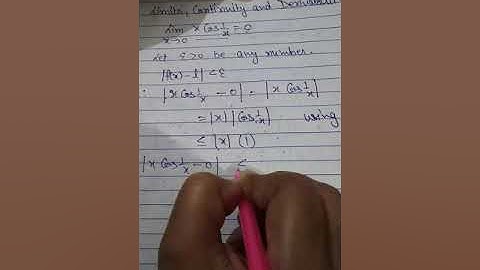 Limits, Continuity and Derivative
lim x Cos 1/x = 0
x→0
Let ε>0 be any number.
|f(x) - l| < ε
|x Cos 1/x - 0| = |x Cos 1/x|
= |x| |Cos 1/x| using
≤ |x| (1)
|x Cos 1/x - 0| ≤